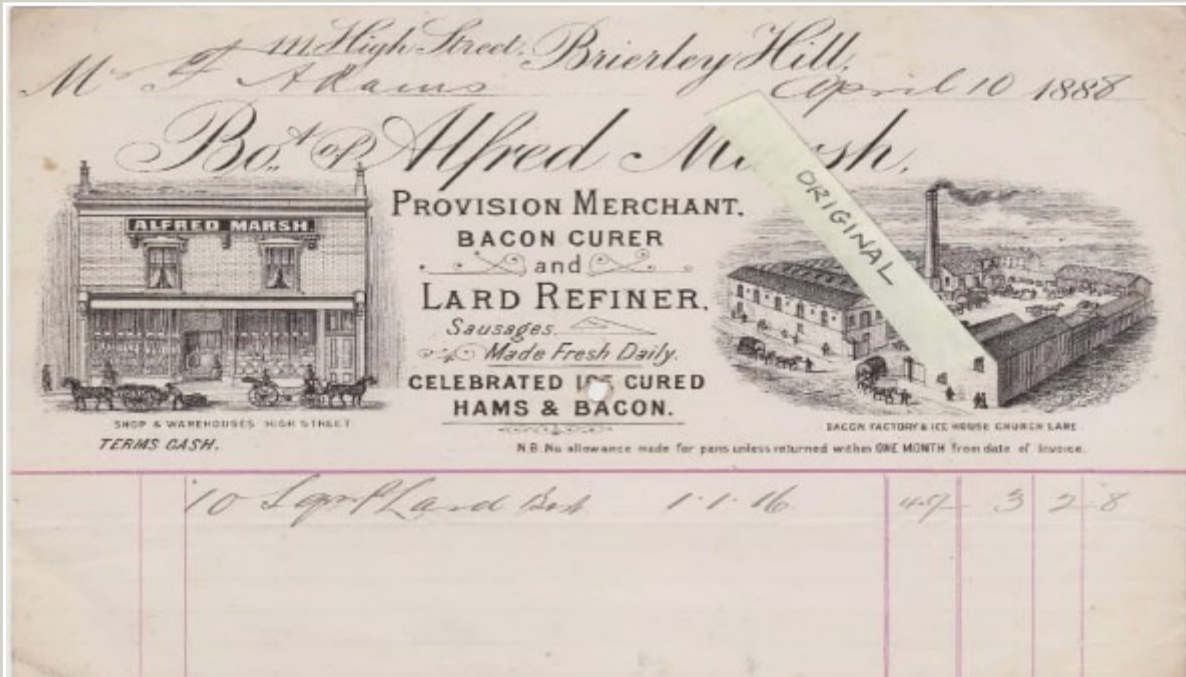 111 High Street, Brierley Hill,
Mr F Adams April 10 1888
Bot. of Alfred Marsh,
ORIGINAL
ALFRED MARSH.
PROVISION MERCHANT.
BACON CURER
and
LARD REFINER.
Sausages
Made Fresh Daily.
CELEBRATED ICE CURED
HAMS & BACON.
SHOP & WAREHOUSES HIGH STREET
BACON FACTORY & ICE HOUSE CHURCH LANE
TERMS CASH.
N.B. No allowance made for pans unless returned within ONE MONTH from date of Invoice.
10 Lard Best 1-1-16 45/- 3 2 8